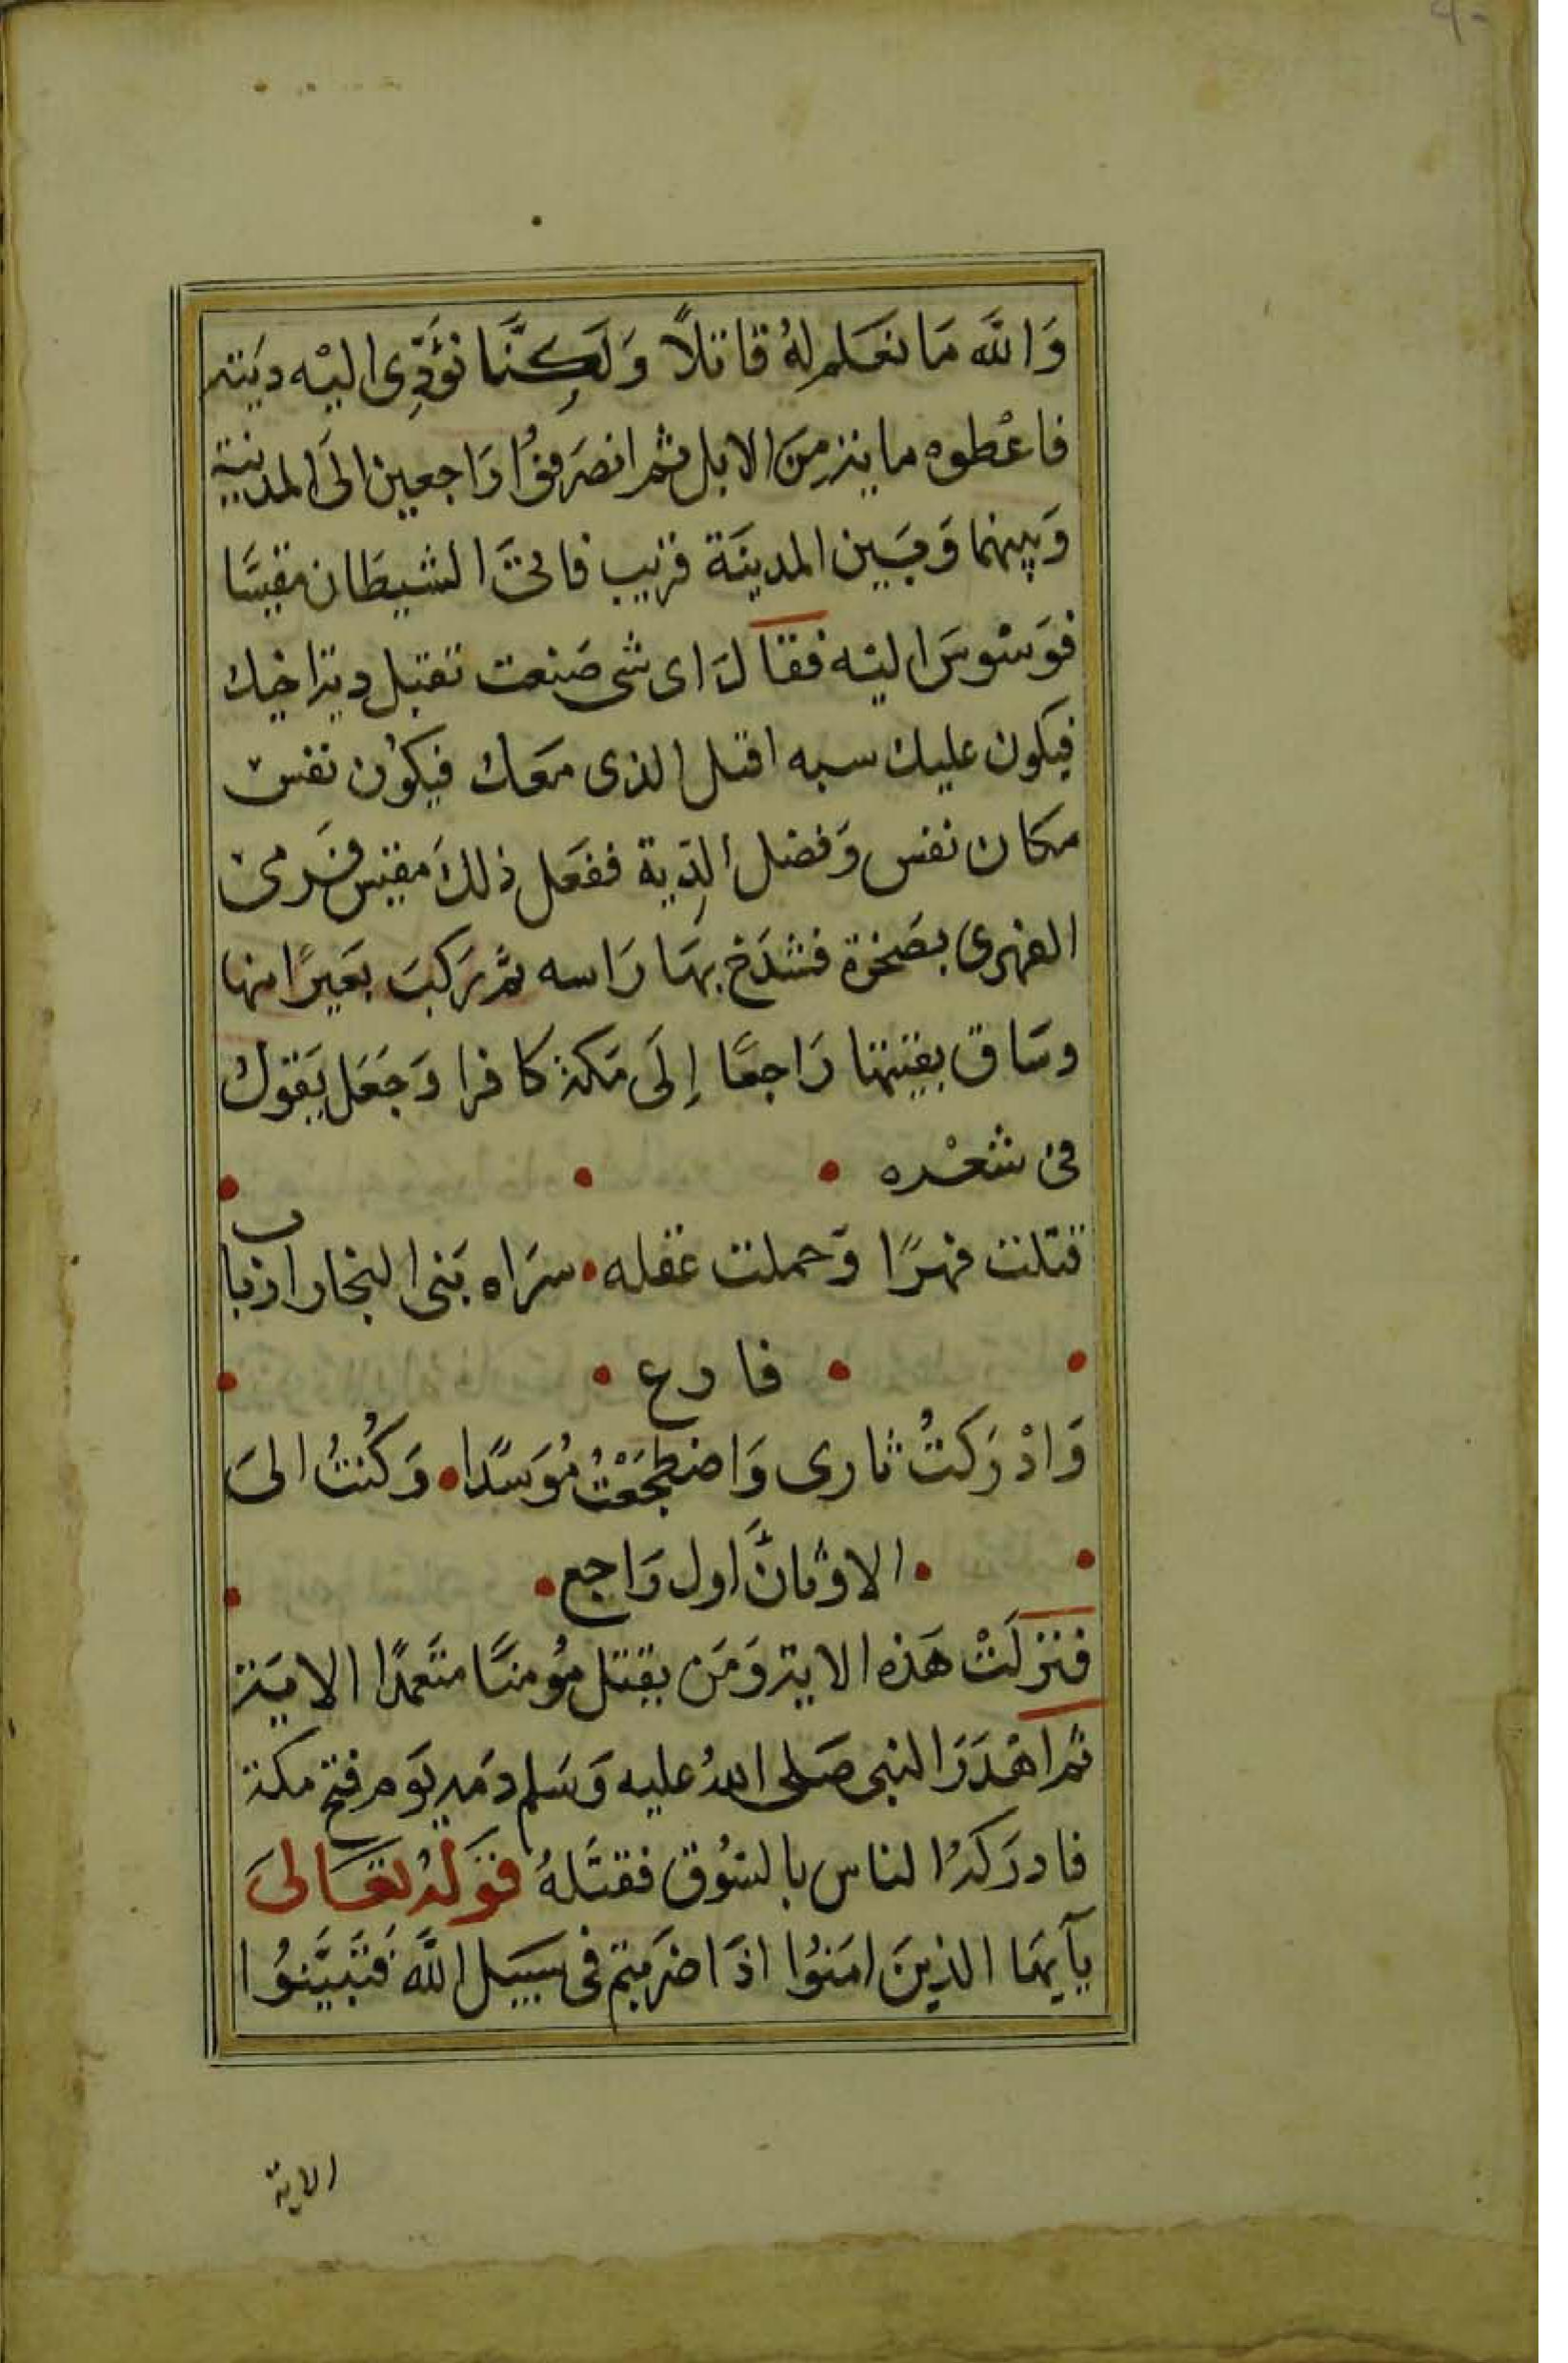 وَاللَّه مَا نعَلم لهُ قاتلًا وَلَكِنَّا نؤَدِّى اليْه ديَته
فاعْطوه مايتر مِنَ الابل ثم انصَرفوُا رَاجعين الىَ المدنية
وَبينهما وَبَين المدينَة قريب فاتىَ الشيطَان مقيسَّا
فوَسْوسَ اليْه فقَالَ اى شى صَنعت تقبل دية اخيك
فيكون عليك سبه اقتل الذى معَك فيكوُن نفس
مكان نفس وَفضل الدِّية ففعَل ذلكَ مقيس فَرمىَ
الفهرى بصَخرة فشدَخ بهَا رَاسه ثمَّ رَكبَ بعَيرًا منها
وسَاق بقيتها رَاجعًا إلَى مَكة كافرا وَجَعَل يَقول
فى شعْره
قتلت فهرًا وَحملت عقله سرَاه بَنى النجار ارباب
فارع
وَادْرَكتُ ثارى وَاضطجَعْتُ مُوَسَّدًا وَكُنتُ الىَ
الاوْثانَّ اول رَاجع
فنزلَتْ هَذه الاية وَمَن يقتل مؤُمنَّا متَعمدًا الايَة
ثم اهْدَرَ النبى صَلى اللهُ عليه وَسَلم دمَه يوَم فتح مكة
فادرَكهُ الناس بالسُوق فقتَلهُ قوَلهُ تعَالىَ
يآيهَا الذينَ امَنوُا اذَا ضرَبتم فى سَبيَل اللَّه فَتَبيَّنوُا
الاية